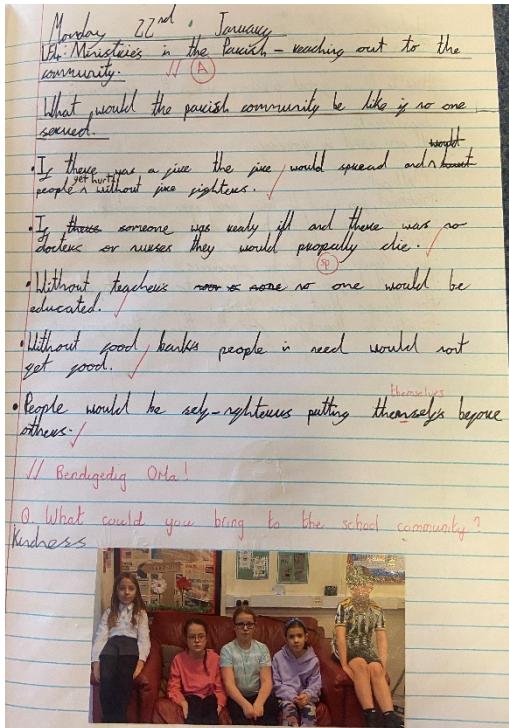 Monday 22nd January
L.I.: Ministries in the Parish - reaching out to the
community. // A
What would the parish community be like if no one
served.
• If there was a fire the fire would spread and would
people get hurt without fire fighters.
• If someone was realy ill and there was no
doctors or nurses they would propally die.
sp
• Without teachers no one would be
educated.
• Without food banks people in need would not
get food.
themselves
• People would be self-righteous putting themselfs before
others.
// Bendigedig Orla!
Q What could you bring to the school community?
Kindness